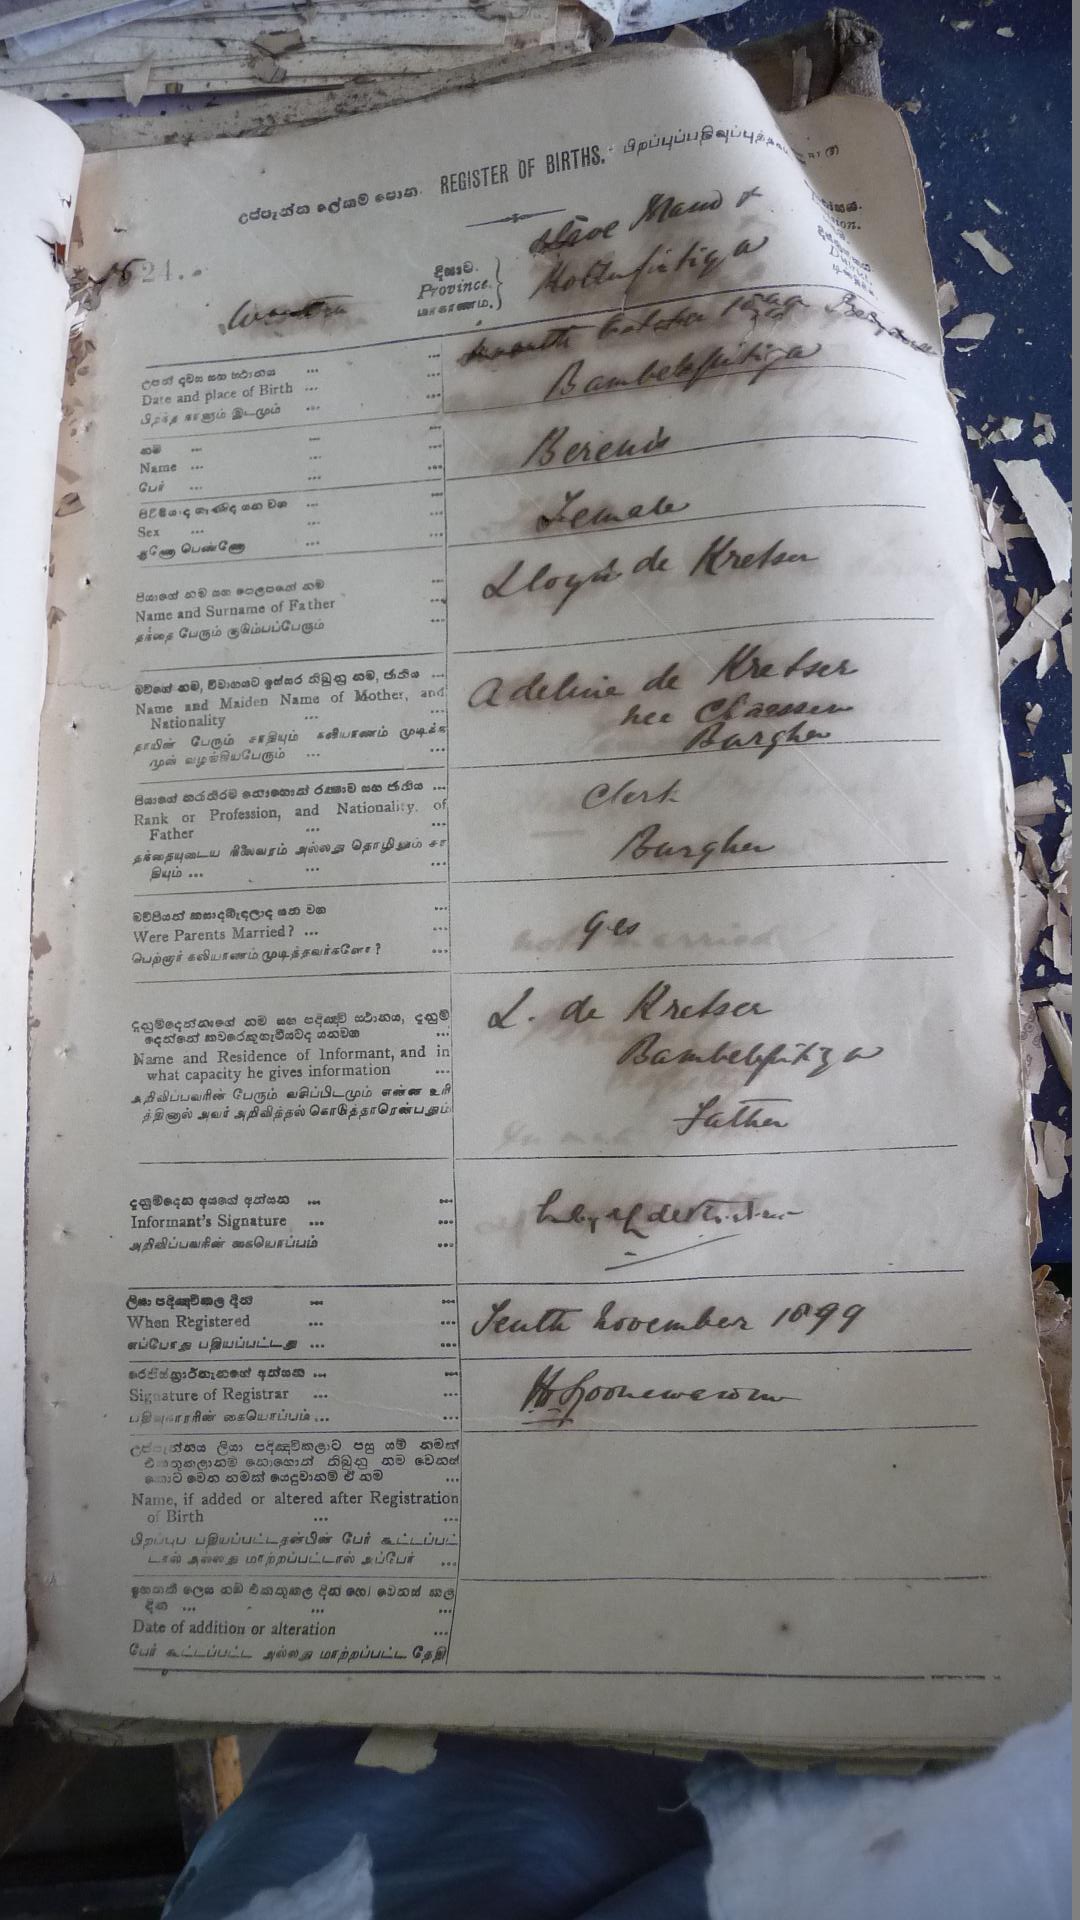 උප්පැන්න ලේකම් පොත. REGISTER OF BIRTHS. பிறப்புப்பதிவுப்புத்
Slave Island &
24.
දිසාව.
Province.
மாகாணம்.
Western
Kollupitiya
October 1899
උපන් දවස සහ ස්ථානය ...
Date and place of Birth ... Bambalapitiya
பிறந்த நாளும் இடமும் ...
නම ...
Name ... Berenis
பேர் ...
පිරිමිද ගැණිද යන වග ...
Sex ... Female
ஆணோ பெண்ணோ ...
පියාගේ නම සහ පෙලපතේ නම ...
Name and Surname of Father ... Lloyd de Kretser
தந்தை பேரும் குடும்பப்பேரும் ...
මව්ගේ නම, විවාහයට ඉස්සර තිබුනු නම, ජාතිය ...
Name and Maiden Name of Mother, and Adeline de Kretser
Nationality ... nee Claessen
தாயின் பேரும் சாதியும் கலியாணம் முடிக்க Burgher
முன் வழங்கியபேரும் ...
පියාගේ තරාතිරම නොහොත් රක්ෂාව සහ ජාතිය ... Clerk
Rank or Profession, and Nationality of
Father ... Burgher
தந்தையுடைய நிலைவரம் அல்லது தொழிலும் சா
தியும் ...
මව්පියන් කසාදබැඳලාද යන වග ...
Were Parents Married? ... yes
பெற்றார் கலியாணம் முடித்தவர்களோ? ...
දැනුම්දෙන්නාගේ නම සහ පදිංචි ස්ථානය, දැනුම් L. de Kretser
දෙන්නේ කවරෙකුහැටියටද යනවග ...
Name and Residence of Informant, and in Bambalapitiya
what capacity he gives information ...
அறிவிப்பவரின் பேரும் வசிப்பிடமும் என்ன உரி Father
த்தினால் அவர் அறிவித்தல் கொடுத்தாரென்பதும்
දැනුම්දෙන අයගේ අත්සන ...
Informant's Signature ...
அறிவிப்பவரின் கையொப்பம் ...
ලියා පදිංචිකල දින ...
When Registered ... Tenth November 1899
எப்போது பதியப்பட்டது ...
රෙජිස්ත්‍රාර්තැනගේ අත්සන ...
Signature of Registrar ...
பதிவுகாரரின் கையொப்பம் ...
උප්පැන්නය ලියා පදිංචිකලාට පසු යම් නමක්
එකතුකලානම් නොහොත් තිබුනු නම වෙනස්
කොට වෙන නමක් යෙදුවානම් ඒ නම ...
Name, if added or altered after Registration
of Birth ...
பிறப்புப் பதியப்பட்டதன்பின் பேர் கூட்டப்பட்
டால் அல்லது மாற்றப்பட்டால் அப்பேர் ...
ඉහතකී ලෙස නම එකතුකල දින හෝ වෙනස් කල
දින ...
Date of addition or alteration ...
பேர் கூட்டப்பட்ட அல்லது மாற்றப்பட்ட தேதி